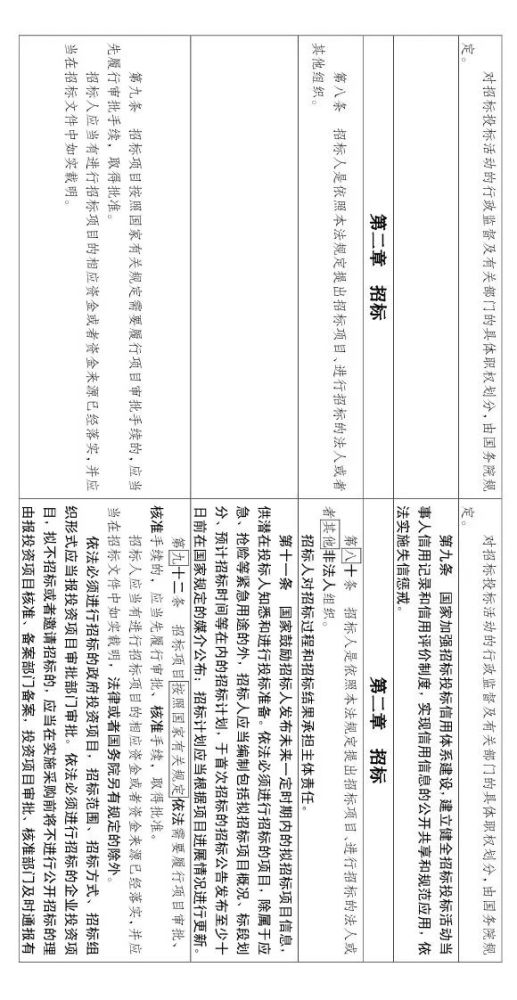 对招标投标活动的行政监督及有关部门的具体职权划分，由国务院规
定。
第二章　招标
第八条　招标人是依照本法规定提出招标项目、进行招标的法人或者
其他组织。
第九条　招标项目按照国家有关规定需要履行项目审批手续的，应当
先履行审批手续，取得批准。
招标人应当有进行招标项目的相应资金或者资金来源已经落实，并应
当在招标文件中如实载明。
对招标投标活动的行政监督及有关部门的具体职权划分，由国务院规
定。
第九条　国家加强招标投标信用体系建设，建立健全招标投标活动当
事人信用记录和信用评价制度，实现信用信息的公开共享和规范应用，依
法实施失信惩戒。
第二章　招标
第八十条　招标人是依照本法规定提出招标项目、进行招标的法人或
者其他非法人组织。
招标人对招标过程和招标结果承担主体责任。
第十一条　国家鼓励招标人发布未来一定时期内的拟招标项目信息，
供潜在投标人知悉和进行投标准备。依法必须进行招标的项目，除属于应
急、抢险等紧急用途的外，招标人应当编制包括拟招标项目概况、标段划
分、预计招标时间等在内的招标计划，于首次招标的招标公告发布至少十
日前在国家规定的媒介公布；招标计划应当根据项目进展情况进行更新。
第九十二条　招标项目按照国家有关规定依法需要履行项目审批、
核准手续的，应当先履行审批、核准手续，取得批准。
招标人应当有进行招标项目的相应资金或者资金来源已经落实，并应
当在招标文件中如实载明，法律或者国务院另有规定的除外。
依法必须进行招标的政府投资项目，招标范围、招标方式、招标组
织形式应当报投资项目审批部门审批。依法必须进行招标的企业投资项
目，拟不招标或者邀请招标的，应当在实施采购前将不进行公开招标的理
由报投资项目核准、备案部门备案，投资项目审批、核准部门及时通报有